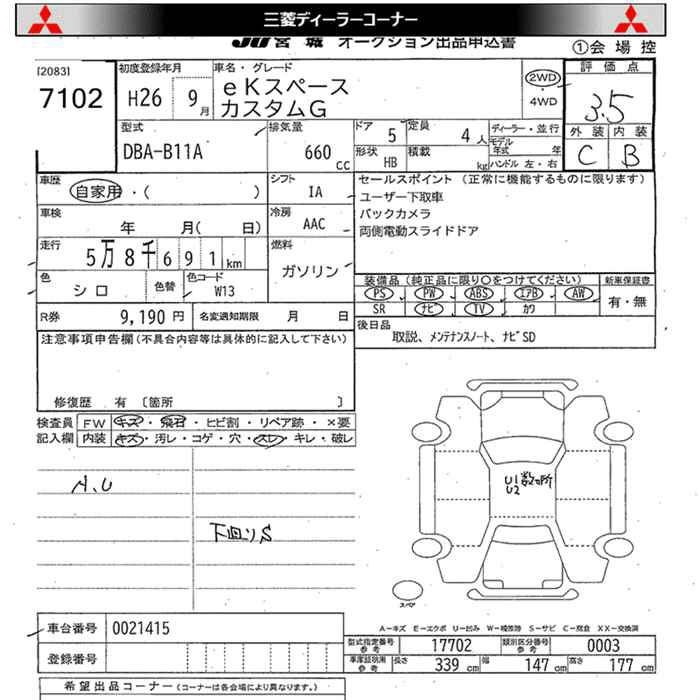 三菱ディーラーコーナー
JU宮城 オークション出品申込書
①会場控
[2083]
7102
初度登録年月
H26 9月
車名・グレード
eKスペース
カスタムG
2WD
・
4WD
評価点
3.5
外装 内装
C B
型式
DBA-B11A
排気量
660 cc
ドア 5
定員 4人
形状 HB
積載 kg
ディーラー・並行
モデル年式 年
ハンドル 左・右
車歴
自家用・( )
シフト
IA
セールスポイント (正常に機能するものに限ります)
ユーザー下取車
バックカメラ
両側電動スライドドア
車検
年 月( 日)
冷房
AAC
走行
5万8千691km
燃料
ガソリン
色
シロ
色替
色コード
W13
装備品(純正品に限り○をつけてください)
新車保証書
PS PW ABS エアB AW
SR ナビ TV カワ
有・無
R券 9,190円
名変通知期限 月 日
後日品
取説、メンテナンスノート、ナビSD
注意事項申告欄(不具合内容等は具体的に記入して下さい)
修復歴 有 〔箇所 〕
検査員記入欄
FW キズ・飛石・ヒビ割・リペア跡・×要
内装 キズ・汚レ・コゲ・穴・スレ・キレ・破レ
A,U
下回りS
U1数ヶ所
U2
スペア
A-キズ E-エクボ U-凹み W-補修跡 S-サビ C-腐食 X X-交換済
車台番号 0021415
登録番号
型式指定番号 参考 17702
類別区分番号 参考 0003
車庫証明用 参考 長さ 339cm 幅 147cm 高さ 177cm
希望出品コーナー(コーナーは各会場により異なります。)